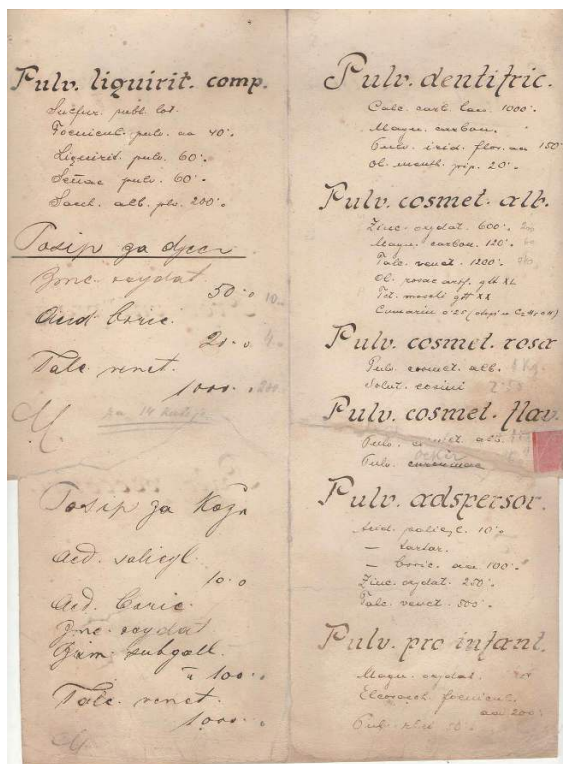 Pulv. liquirit. comp.
Sulfur. subl. lot.
Foenicul. pulv. aa 40·.
Liquirit. pulv. 60·.
Sennae pulv. 60·.
Sacch. alb. plv. 200·.
Posip za djecu
Zinc. oxydat
50·0 10
Acid boric.
20·0 4
Talc. venet.
1000·0 200
za 14 kutija
Posip za Kožu
Acd. salicyl.
10·0
Acd. boric.
Zinc. oxydat
subgall.
100·0
Talc. venet.
1000·0
Pulv. dentifric.
Calc. carb. lev. 1000·.
Magn. carbon.
Pulv. irid. flor. aa 150
Ol. menth. pip. 20·.
Pulv. cosmet. alb.
Zinc. oxydat. 600·.
Magn. carbon. 120·.
Talc. venet. 1200·.
Ol. rosae gtt XL
Tct. moschi gtt XX
Cumarin 0·25
Pulv. cosmet. rosa
Pulv. cosmet. alb. 1 Kg.
Solut. eosini
Pulv. cosmet. flav.
Pulv. cosmet. alb.
Ocker
Pulv. curcumae
Pulv. adspersor.
Acid. salicyl. 10·.
— tartar.
— boric. aa 100·.
Zinc. oxydat. 250·.
Talc. venet. 500·.
Pulv. pro infant.
Magn. oxydat.
Elaeosacch. foenicul.
aa 200
Pulv. rhei 50·.